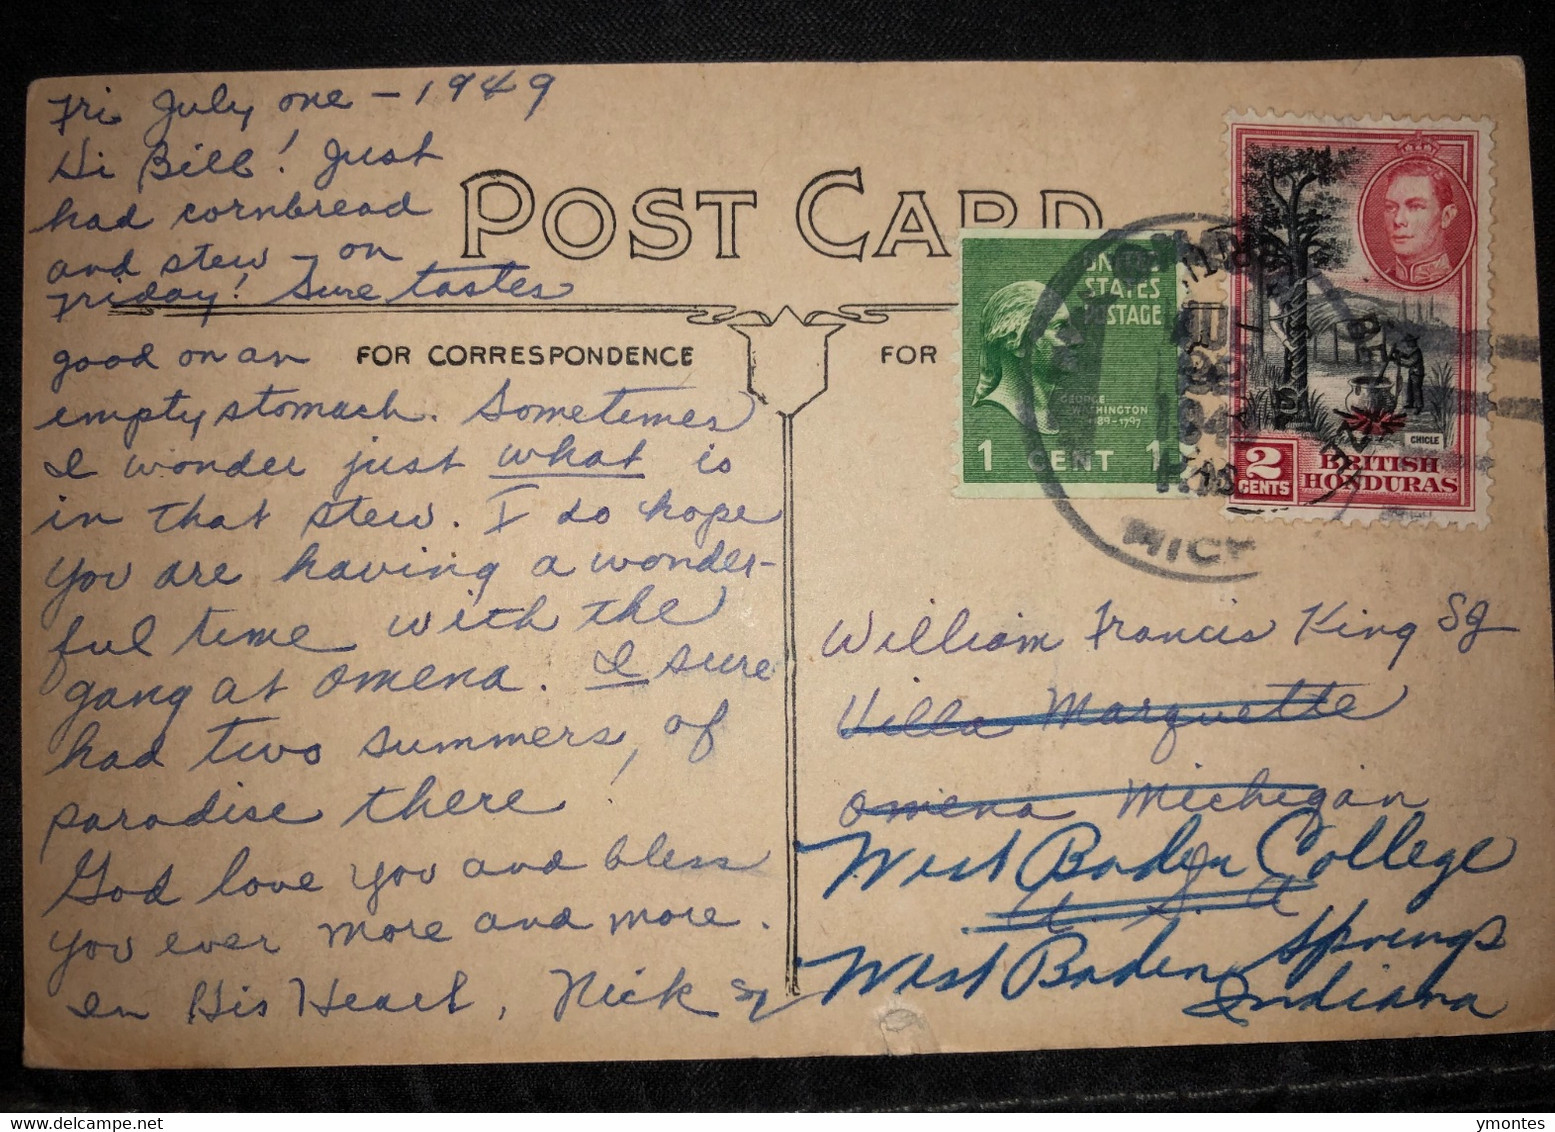 Fri July one – 1949
Hi Bill! Just
had cornbread
and stew – on
Friday! Sure tastes
good on an
empty stomach. Sometimes
I wonder just what is
in that stew. I do hope
you are having a wonder-
ful time with the
gang at Omena. I sure
had two summers, of
paradise there!
God love you and bless
you ever more and more.
In His Heart, Nick SJ
POST CARD
FOR CORRESPONDENCE
FOR
UNITED
STATES
POSTAGE
GEORGE
WASHINGTON
1789-1797
1 CENT 1
CHICLE
2
CENTS
BRITISH
HONDURAS
MICH
William Francis King SJ
Villa Marquette
Omena Michigan
U. S. A
West Baden College
West Baden Springs
Indiana
ymontes